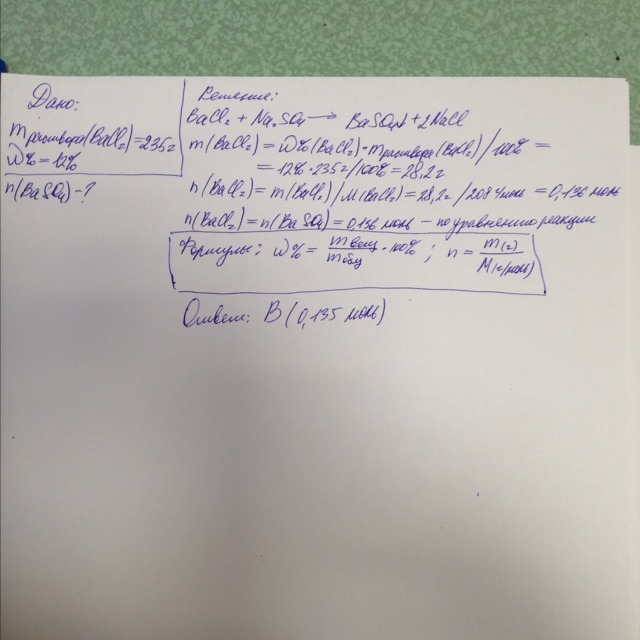 Дано:
m раствора(BaCl₂)=235г
W%=12%
n(BaSO₄)-?
Решение:
BaCl₂ + Na₂SO₄ → BaSO₄↓ + 2NaCl
m(BaCl₂) = W%(BaCl₂)·m раствора(BaCl₂)/100% =
= 12%·235г/100% = 28,2г
n(BaCl₂) = m(BaCl₂)/M(BaCl₂) = 28,2г/208 г/моль = 0,136 моль
n(BaCl₂) = n(BaSO₄) = 0,136 моль – по уравнению реакции
Формулы: W% = m вещ/m общ · 100% ; n = m(г)/M(г/моль)
Ответ: В (0,135 моль)